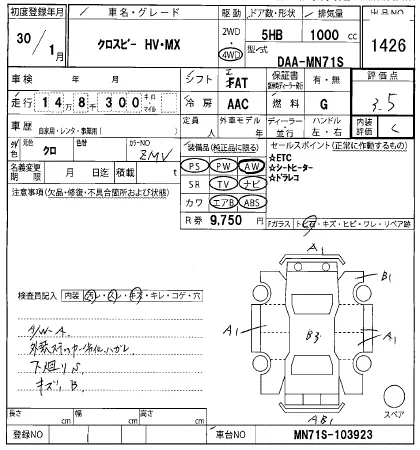 初度登録年月 車名・グレード 駆動 ドア数・形状 排気量 出品NO
30 / 1月 クロスビー HV・MX 2WD 4WD 5HB 1000 cc 1426
型式 DAA-MN71S
車検 年 月 シフト FAT 保証書 有・無 評価点
走行 14万8千300 キロ・マイル 冷房 AAC 燃料 G 3.5
車歴 自家用・レンタ・事業用( ) 定員 人 外車モデル 年 ディーラー・並行 ハンドル 左・右 内装評価 C
外色 元色 クロ 色替 カラーNO ZMV 装備品(純正品に限る) セールスポイント(正常に作動するもの)
名義変更期限 月 日迄 積載 t PS PW AW ☆ETC
注意事項(欠品・修復・不具合箇所および状態) SR TV ナビ ☆シートヒーター
カワ エアB ABS ☆ドラレコ
R券 9,750 円
Fガラス トビ石・キズ・ヒビ・ワレ・リペア跡
A1
B1
検査員記入 内装 汚レ・スレ・キズ・キレ・コゲ・穴
A1 B3 A1
A/W-A
外装ステッカー劣化、ハガレ
下廻りS
キズ、B
AB1
スペア
長さ cm 幅 cm 高さ cm
登録NO 車台NO MN71S-103923